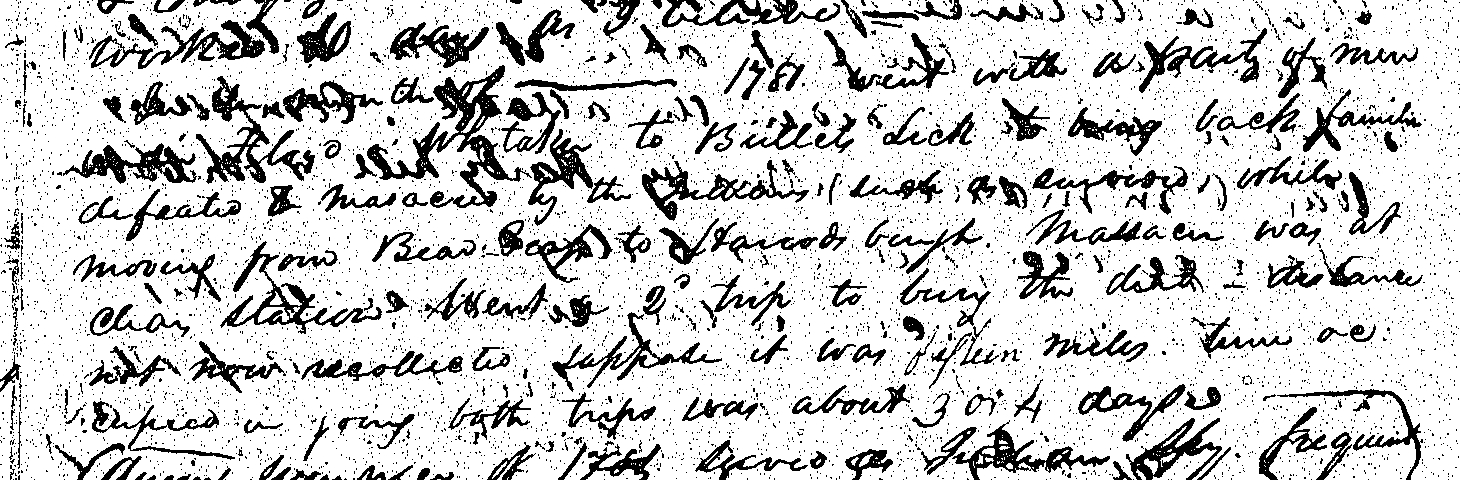 worked day as I believe
in the month of ——— 1781. went with a party of men
Whitaker to Bullets Lick to bring back families
defeated & masacred by the Indians (such as survived) while
moving from Bear to Harrods burgh. Massacre was at
Clear Station. Went a 2d trip to bury the dead - distance
not now recollected, suppose it was fifteen miles. time oc
cupied in going both trips was about 3 or 4 days
During Summer of served as Indian Spy. frequent